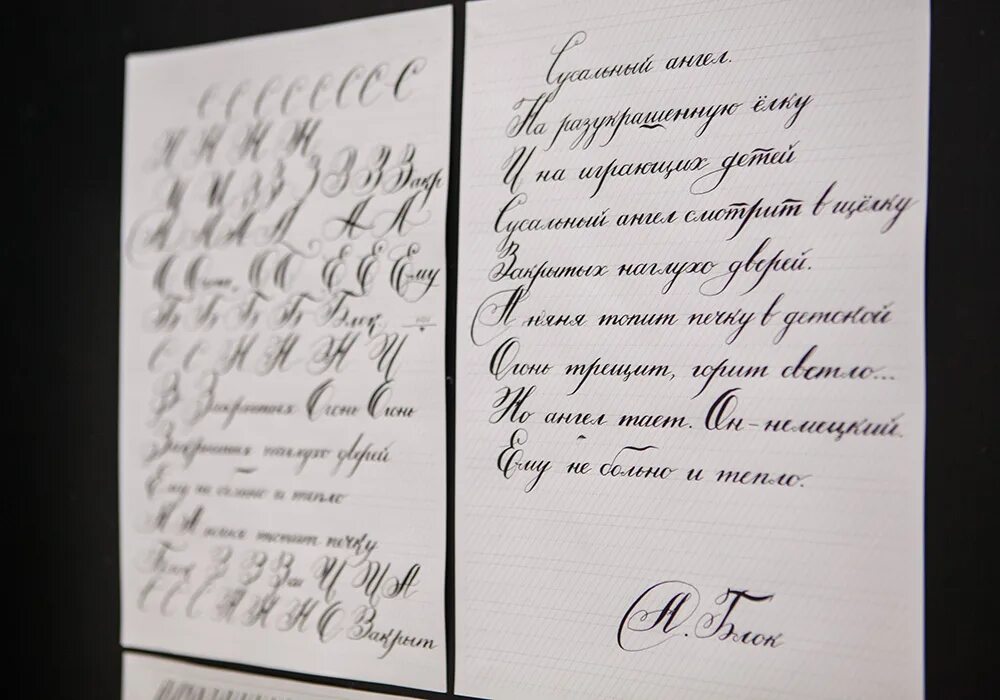 С С С С С С С С
Н Н Н Н
И И З З З З З З Закр
А А А А А А
О Огонь, О О Е Е Ему
Б Б Б Б Блок
С С Н Н Н И
З Закрытых Огонь Огонь
Закрытых наглухо дверей
Ему не больно и тепло
А А няня топит печку
Блок З З За И И А
С С С Н Н Н О Закрыт
Сусальный ангел.
На разукрашенную ёлку
И на играющих детей
Сусальный ангел смотрит в щёлку
Закрытых наглухо дверей.
А няня топит печку в детской
Огонь трещит, горит светло...
Но ангел тает. Он - немецкий.
Ему не больно и тепло.
А. Блок